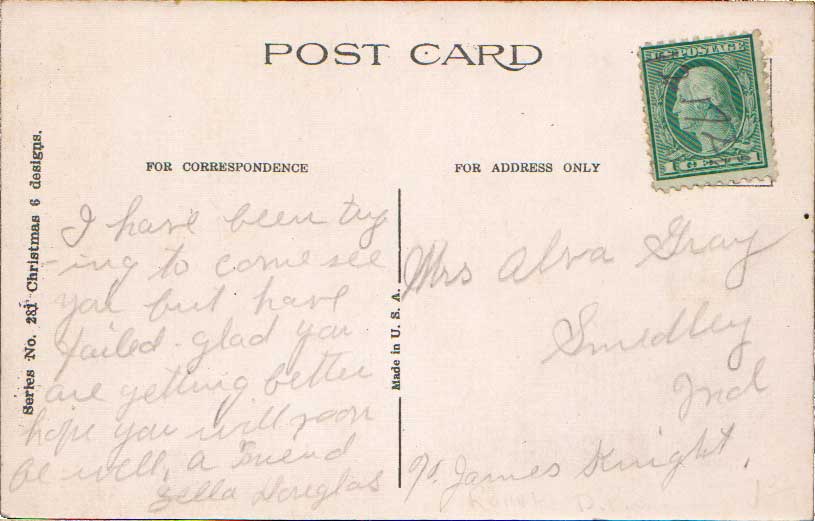 POST CARD
U.S. POSTAGE
1 CENTS 1
FOR CORRESPONDENCE
FOR ADDRESS ONLY
Series No. 281 Christmas 6 designs.
Made in U. S. A.
I have been try
-ing to come see
you but have
failed. glad you
are getting better
hope you will soon
be well, a Friend
Zella Douglas
Mrs Alva Gray
Smedley
Ind
℅ James Knight.